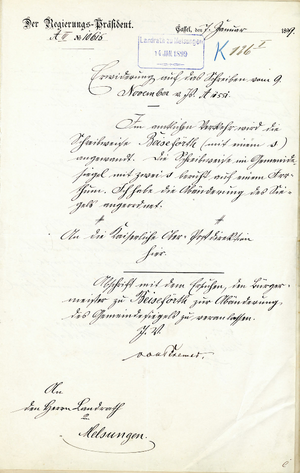 Der Regierungs-Präsident.
Cassel, den 7. Januar 1899.
A II No 10615
Landrath zu Melsungen
14 JAN. 1899
K 116 I
Erwiderung auf das Schreiben vom 9.
November v. Js. A
Im amtlichen Verkehr wird die
Schreibweise Beiseförth (mit einem s)
angewandt. Die Schreibweise im Gemeinde
siegel mit zwei s beruht auf einem Irr
thum. Ich habe die Abänderung des Sie-
gels angeordnet.
An die Kaiserliche Ober-Postdirektion
hier.
Abschrift mit dem Ersuchen, den Bürger-
meister zu Beiseförth zur Abänderung
des Gemeindesiegels zu veranlassen.
J. V.
An
den Herrn Landrath
Melsungen.